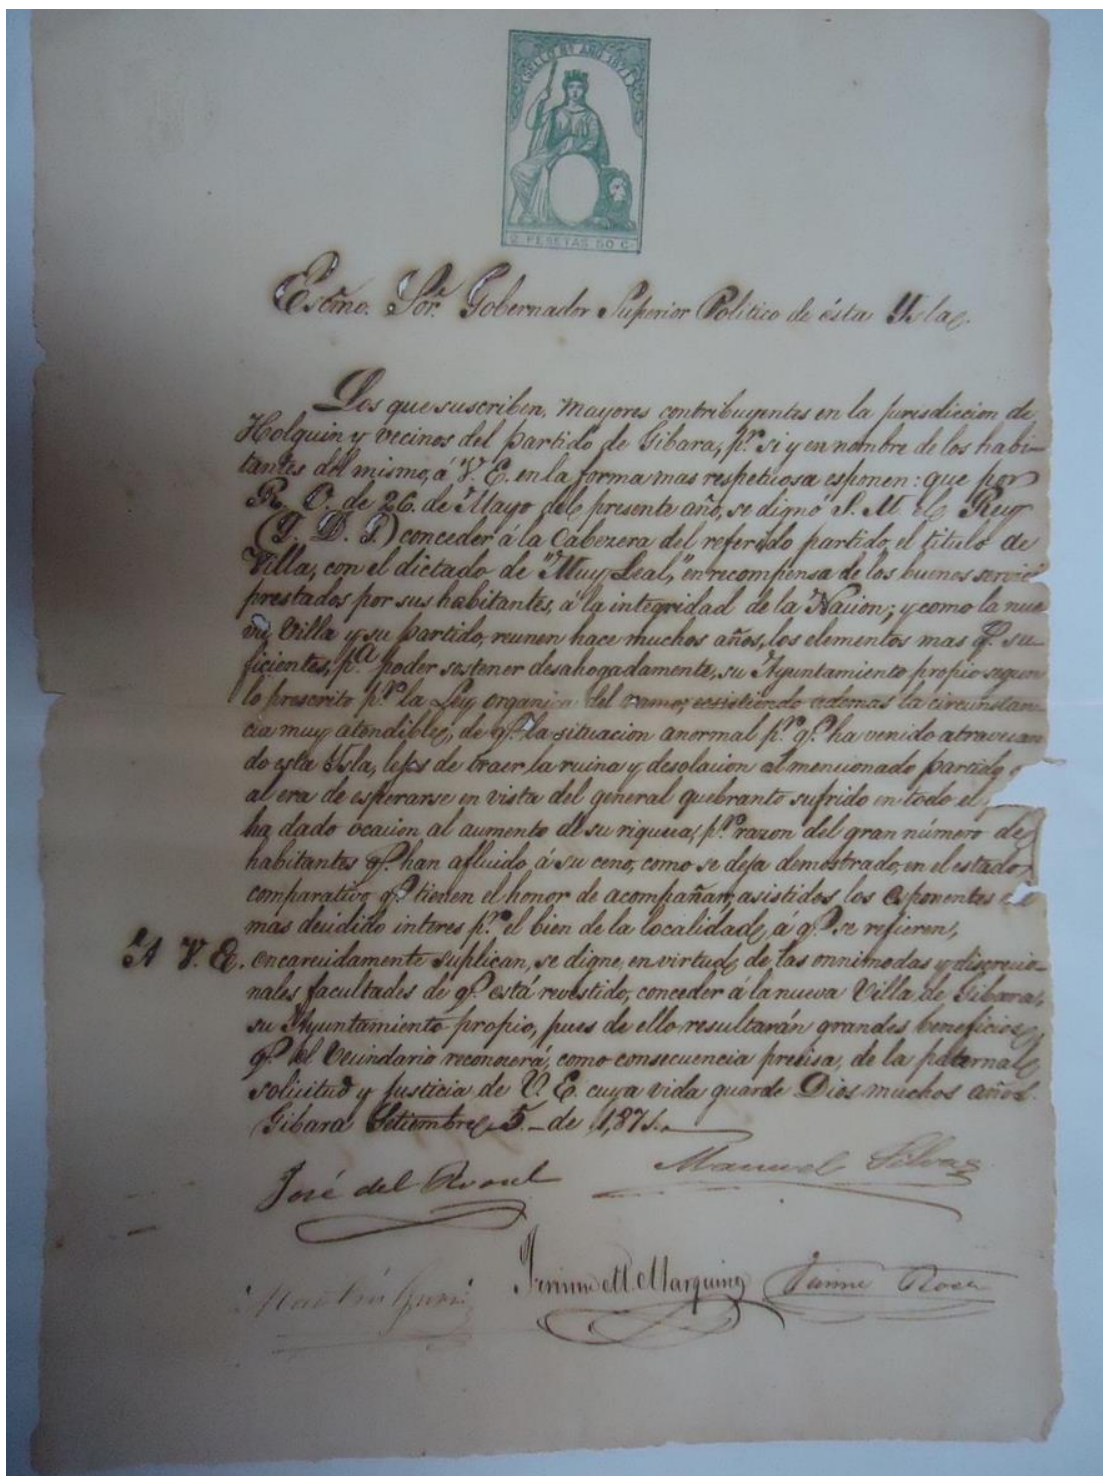 SELLO 8º AÑO 1871
2 PESETAS 50 C.
Escmo. Sor. Gobernador Superior Político de ésta Ysla.
Los que suscriben, mayores contribuyentes en la jurisdiccion de
Holguin y vecinos del partido de Gibara, pr. si y en nombre de los habi-
tantes del mismo, á V. E. en la forma mas respetuosa esponen: que por
R. O. de 26. de Mayo del presente año, se dignó S. M. el Rey
(Q. D. G.) conceder á la Cabezera del referido partido, el titulo de
Villa, con el dictado de "Muy Leal," en recompensa de los buenos servici
prestados por sus habitantes, á la integridad de la Nacion; y como la nue
va Villa y su partido, reunen hace muchos años, los elementos mas q. su-
ficientes, pa. poder sostener desahogadamente, su Ayuntamiento propio segun
lo prescrito pr. la Ley organica del ramo, ecsistiendo ademas la circunstan
cia muy atendible, de q. la situacion anormal pr. q. ha venido atravesan
do esta Ysla, lejos de traer la ruina y desolacion al mencionado partido
al era de esperarse en vista del general quebranto sufrido en todo el
ha dado ocacion al aumento de su riqueza, pr. razon del gran número de
habitantes q. han afluido á su ceno, como se deja demostrado, en el estado
comparativo q. tienen el honor de acompañar; asistidos los esponentes
mas decidido interes pr. el bien de la localidad, á q. se refieren,
A V. E. encarecidamente suplican, se digne, en virtud de las onnimodas y discrecio-
nales facultades de q. está revestido, conceder á la nueva Villa de Gibara,
su Ayuntamiento propio, pues de ello resultarán grandes beneficios,
q. el Vecindario reconocerá, como consecuencia precisa, de la paternal
solicitud y justicia de V. E. cuya vida guarde Dios muchos años.
Gibara Setiembre 5. de 1,871.
José del Manuel Silva
M. Marquina Jaime Roca